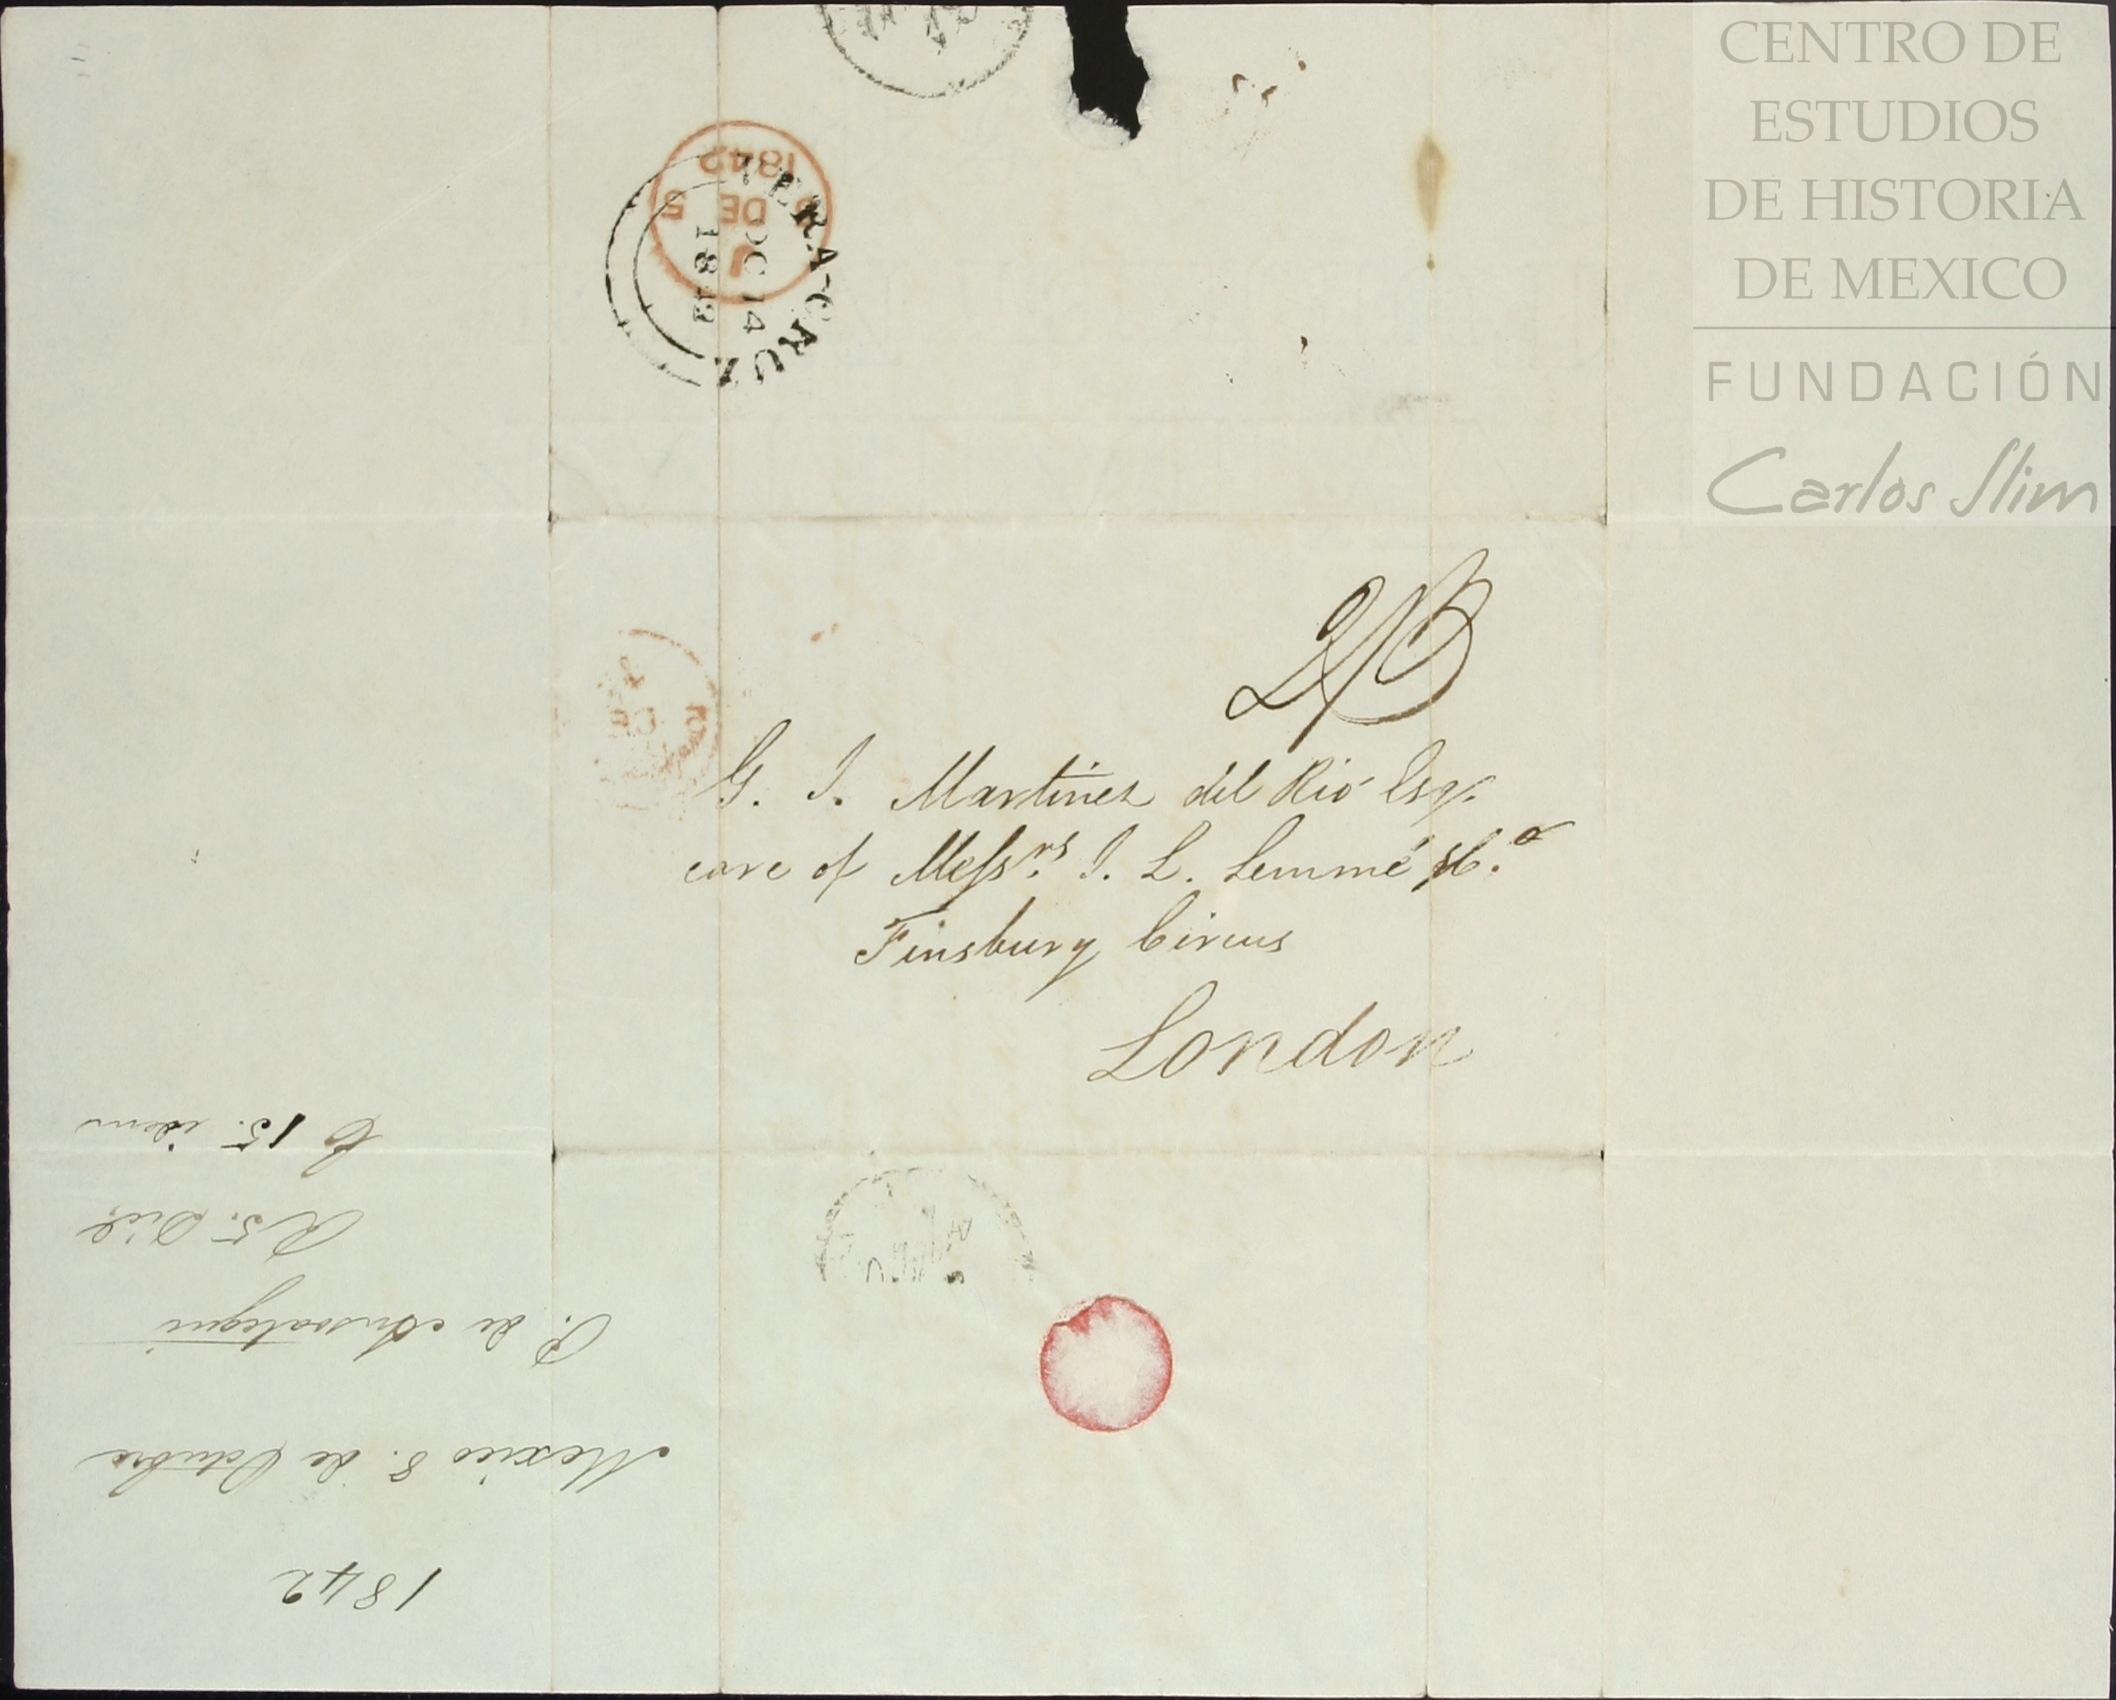 CENTRO DE
ESTUDIOS
DE HISTORIA
DE MEXICO
FUNDACIÓN
Carlos Slim
1842
DE 5
VERA-CRUZ
OC 14
DE
2/3
G. J. Martinez del Rio Esqr.
care of Messrs. J. L. Lemmé & Co.
Finsbury Circus
London
1842
Mexico 8. de Octubre
P. de Ansoategui
R 5. Dice
C 15. idem